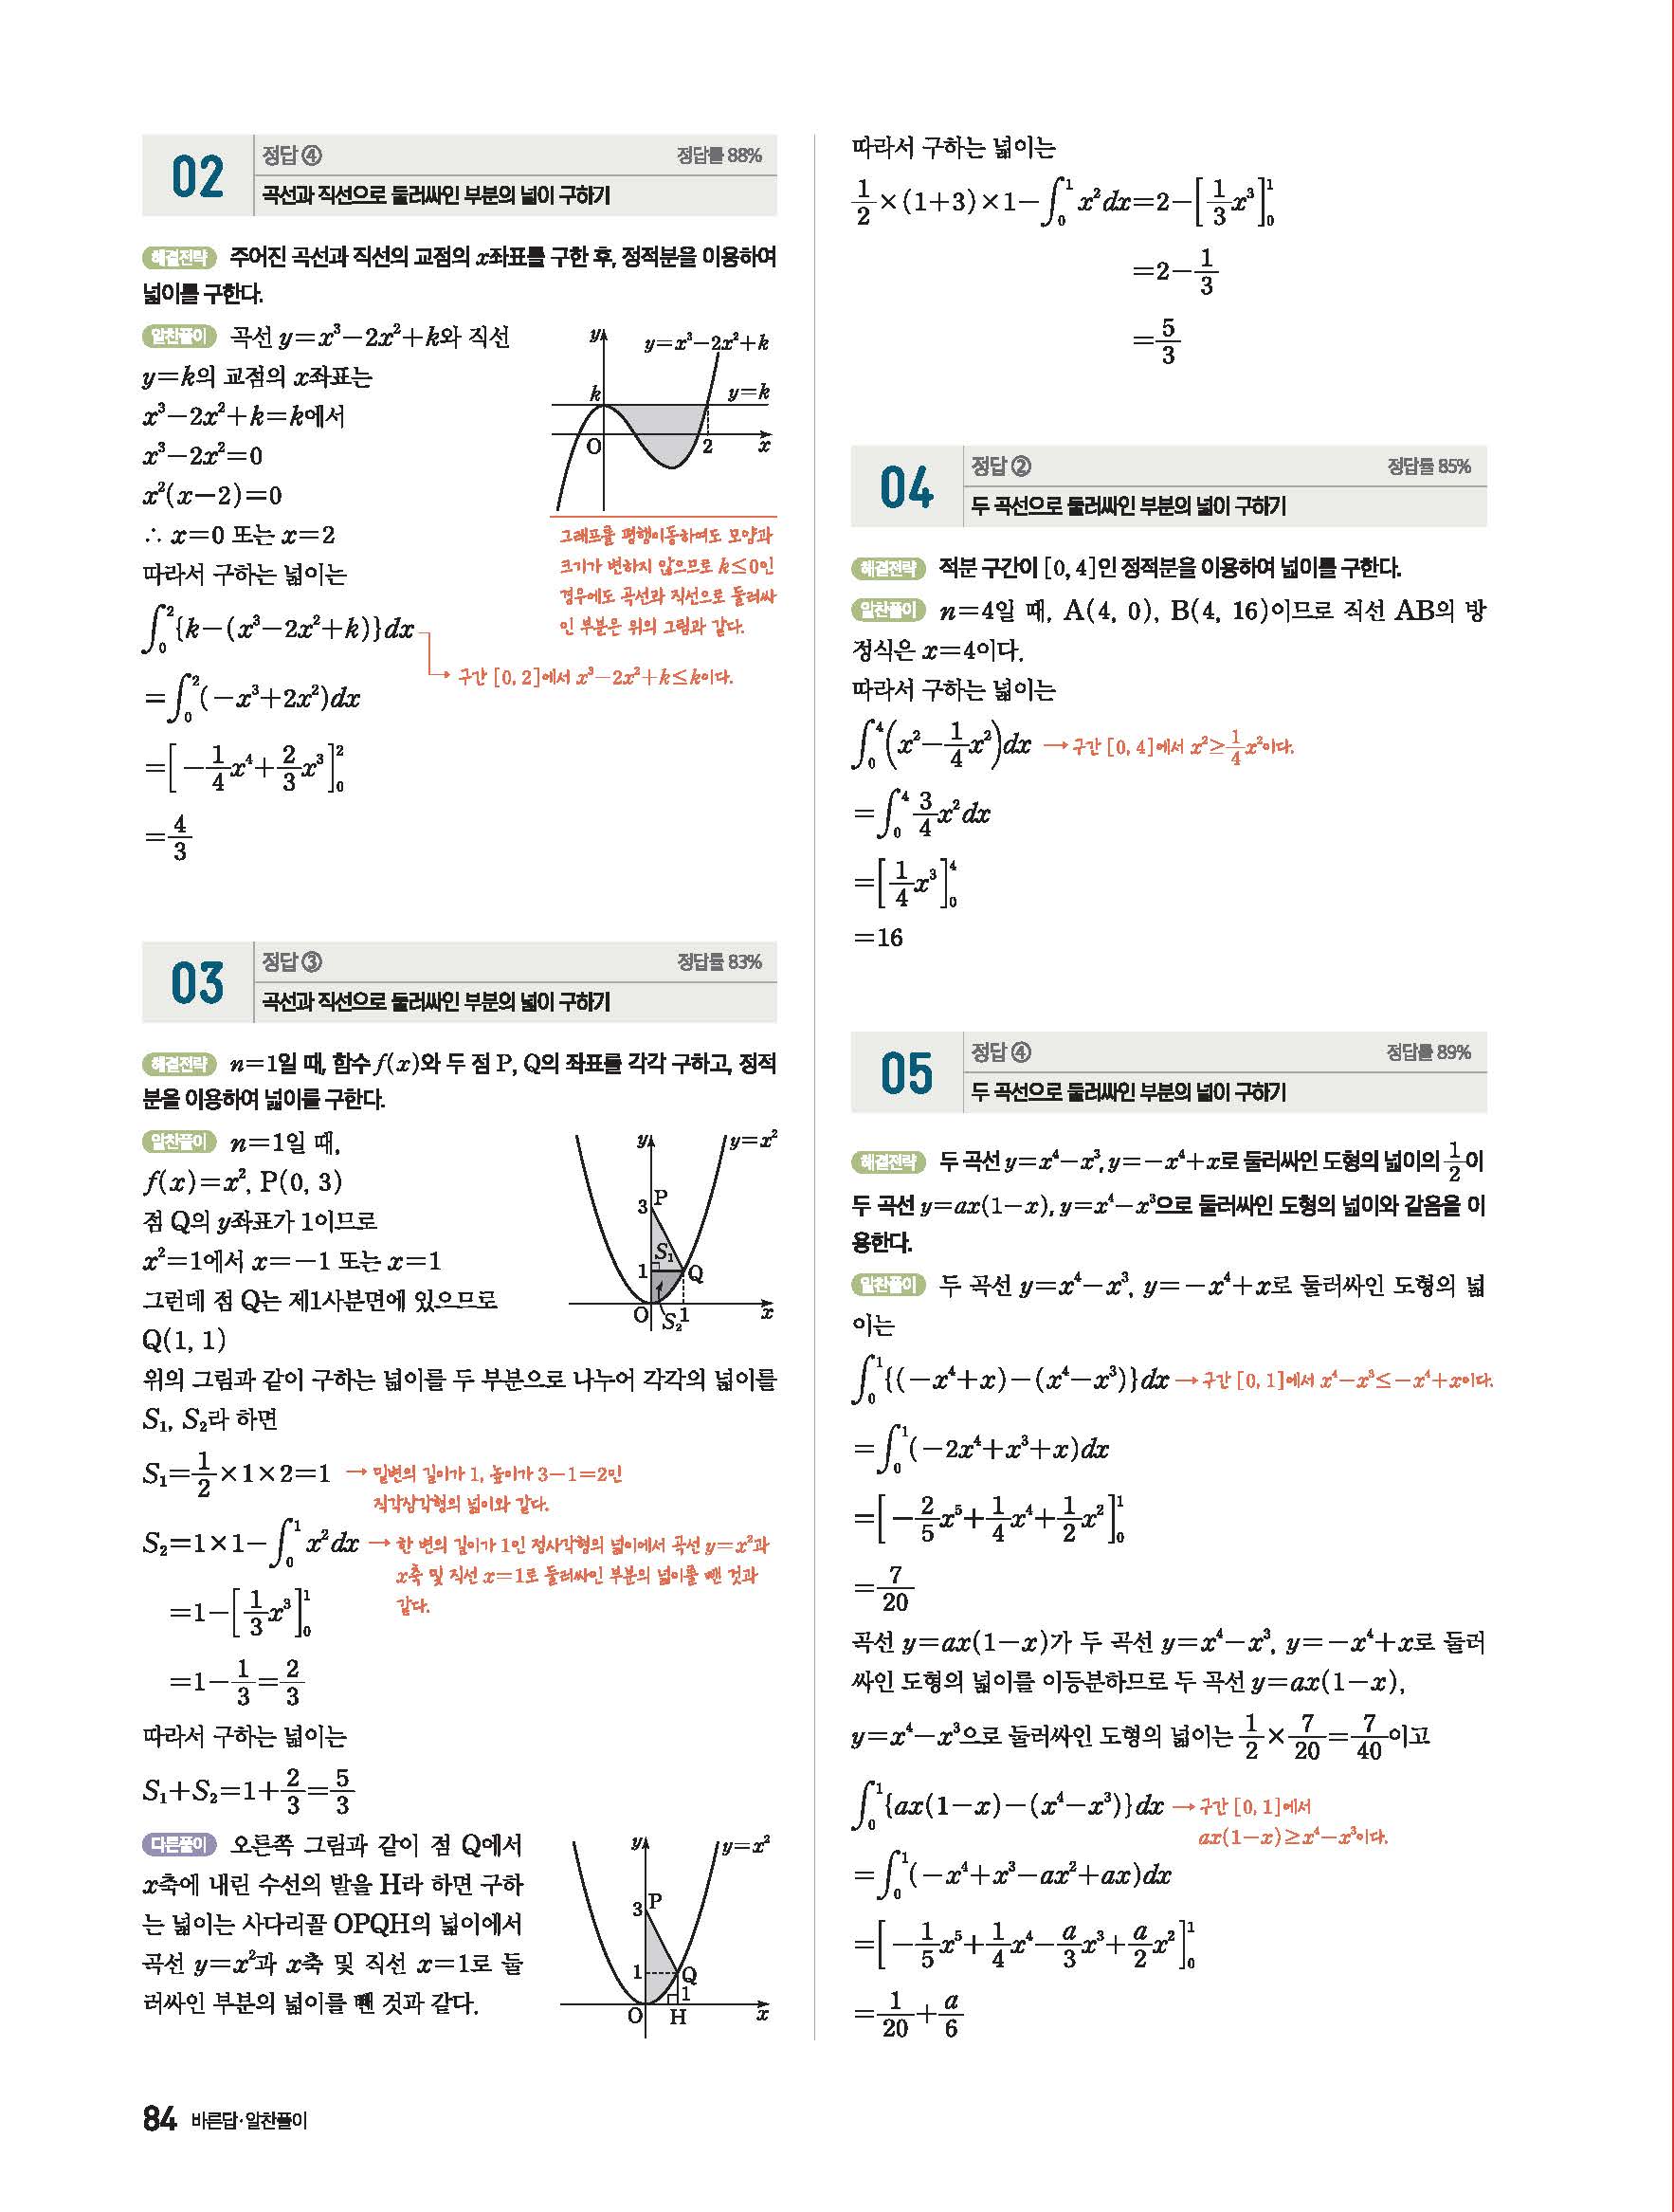 02
정답 ④
정답률 88%
곡선과 직선으로 둘러싸인 부분의 넓이 구하기
해결전략 주어진 곡선과 직선의 교점의 x좌표를 구한 후, 정적분을 이용하여
넓이를 구한다.
알찬풀이 곡선 y=x³-2x²+k와 직선
y=k의 교점의 x좌표는
x³-2x²+k=k에서
x³-2x²=0
x²(x-2)=0
∴ x=0 또는 x=2
따라서 구하는 넓이는
∫₀²{k-(x³-2x²+k)}dx
→ 구간 [0, 2]에서 x³-2x²+k≤k이다.
=∫₀²(-x³+2x²)dx
=[-1/4x⁴+2/3x³]₀²
=4/3
y
y=x³-2x²+k
k
y=k
O
2
x
그래프를 평행이동하여도 모양과
크기가 변하지 않으므로 k≤0인
경우에도 곡선과 직선으로 둘러싸
인 부분은 위의 그림과 같다.
03
정답 ③
정답률 83%
곡선과 직선으로 둘러싸인 부분의 넓이 구하기
해결전략 n=1일 때, 함수 f(x)와 두 점 P, Q의 좌표를 각각 구하고, 정적
분을 이용하여 넓이를 구한다.
알찬풀이 n=1일 때,
f(x)=x², P(0, 3)
점 Q의 y좌표가 1이므로
x²=1에서 x=-1 또는 x=1
그런데 점 Q는 제1사분면에 있으므로
Q(1, 1)
y
y=x²
3
P
S₁
1
Q
O
S₂
1
x
위의 그림과 같이 구하는 넓이를 두 부분으로 나누어 각각의 넓이를
S₁, S₂라 하면
S₁=1/2×1×2=1 → 밑변의 길이가 1, 높이가 3-1=2인
직각삼각형의 넓이와 같다.
S₂=1×1-∫₀¹x²dx → 한 변의 길이가 1인 정사각형의 넓이에서 곡선 y=x²과
x축 및 직선 x=1로 둘러싸인 부분의 넓이를 뺀 것과
같다.
=1-[1/3x³]₀¹
=1-1/3=2/3
따라서 구하는 넓이는
S₁+S₂=1+2/3=5/3
다른풀이 오른쪽 그림과 같이 점 Q에서
x축에 내린 수선의 발을 H라 하면 구하
는 넓이는 사다리꼴 OPQH의 넓이에서
곡선 y=x²과 x축 및 직선 x=1로 둘
러싸인 부분의 넓이를 뺀 것과 같다.
y
y=x²
3
P
1
Q
1
O
H
x
따라서 구하는 넓이는
1/2×(1+3)×1-∫₀¹x²dx=2-[1/3x³]₀¹
=2-1/3
=5/3
04
정답 ②
정답률 85%
두 곡선으로 둘러싸인 부분의 넓이 구하기
해결전략 적분 구간이 [0, 4]인 정적분을 이용하여 넓이를 구한다.
알찬풀이 n=4일 때, A(4, 0), B(4, 16)이므로 직선 AB의 방
정식은 x=4이다.
따라서 구하는 넓이는
∫₀⁴(x²-1/4x²)dx → 구간 [0, 4]에서 x²≥1/4x²이다.
=∫₀⁴3/4x²dx
=[1/4x³]₀⁴
=16
05
정답 ④
정답률 89%
두 곡선으로 둘러싸인 부분의 넓이 구하기
해결전략 두 곡선 y=x⁴-x³, y=-x⁴+x로 둘러싸인 도형의 넓이의 1/2이
두 곡선 y=ax(1-x), y=x⁴-x³으로 둘러싸인 도형의 넓이와 같음을 이
용한다.
알찬풀이 두 곡선 y=x⁴-x³, y=-x⁴+x로 둘러싸인 도형의 넓
이는
∫₀¹{(-x⁴+x)-(x⁴-x³)}dx → 구간 [0, 1]에서 x⁴-x³≤-x⁴+x이다.
=∫₀¹(-2x⁴+x³+x)dx
=[-2/5x⁵+1/4x⁴+1/2x²]₀¹
=7/20
곡선 y=ax(1-x)가 두 곡선 y=x⁴-x³, y=-x⁴+x로 둘러
싸인 도형의 넓이를 이등분하므로 두 곡선 y=ax(1-x),
y=x⁴-x³으로 둘러싸인 도형의 넓이는 1/2×7/20=7/40이고
∫₀¹{ax(1-x)-(x⁴-x³)}dx → 구간 [0, 1]에서
ax(1-x)≥x⁴-x³이다.
=∫₀¹(-x⁴+x³-ax²+ax)dx
=[-1/5x⁵+1/4x⁴-a/3x³+a/2x²]₀¹
=1/20+a/6
84 바른답·알찬풀이